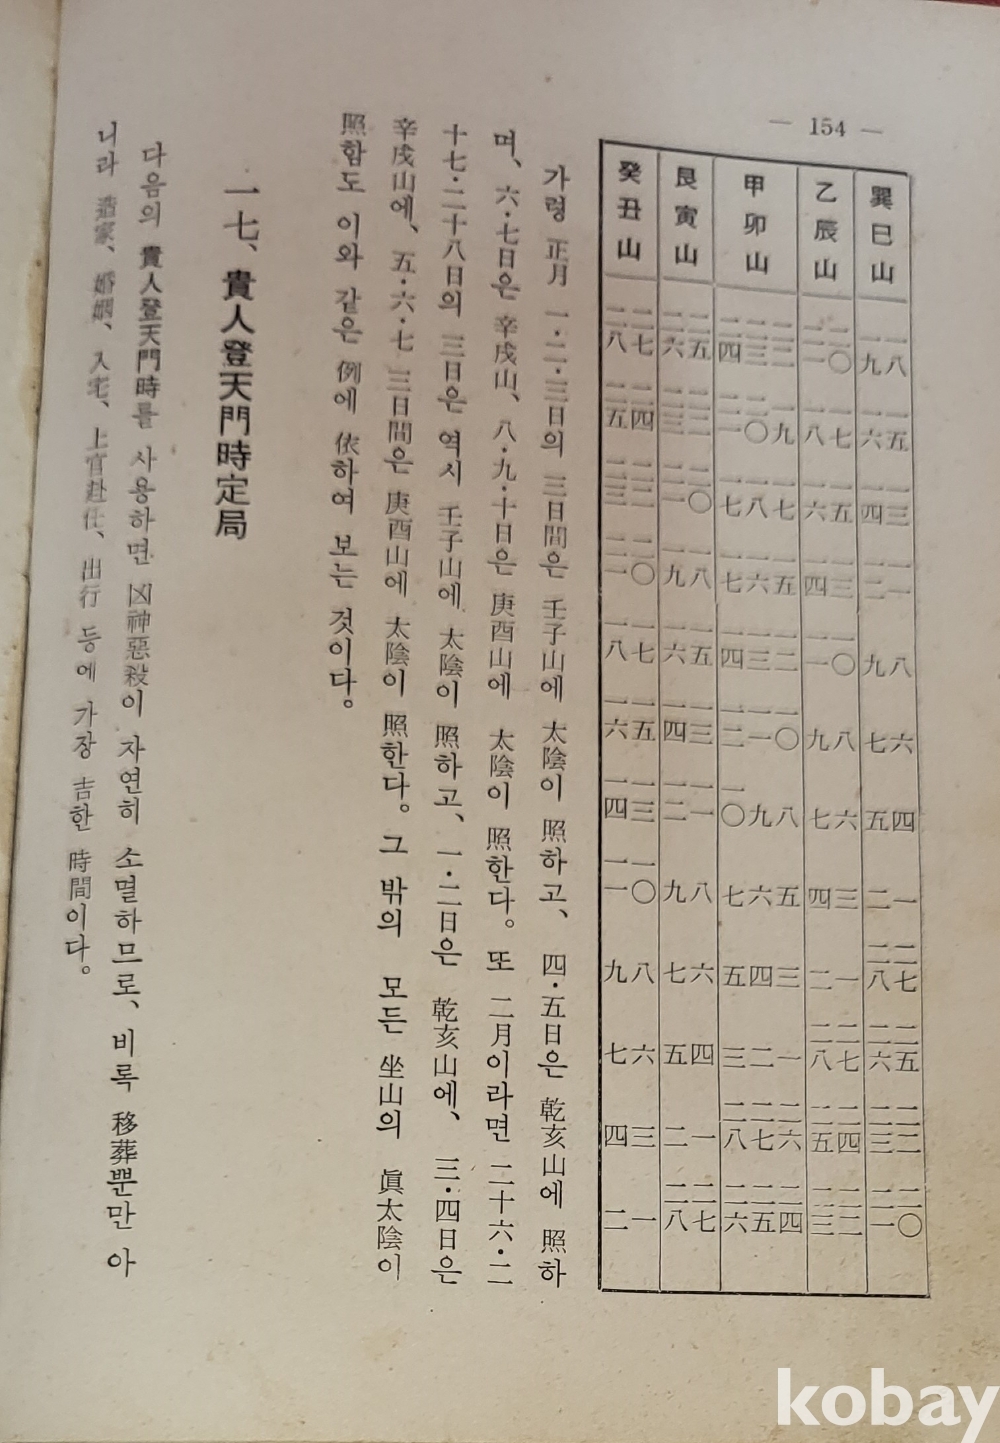 — 154 —
巽巳山 一八 一九 一五 一六 一三 一四 一一 一二 八 九 六 七 四 五 一 二 二七 二八 二五 二六 二二 二三 二〇 二一
乙辰山 二〇 二一 一七 一八 一五 一六 一三 一四 一〇 一一 八 九 六 七 三 四 一 二 二七 二八 二四 二五 二二 二三
甲卯山 二二 二三 二四 一九 二〇 二一 一七 一八 一七 一五 一六 一七 一二 一三 一四 一〇 一一 一二 八 九 一〇 五 六 七 三 四 五 一 二 三 二六 二七 二八 二四 二五 二六
艮寅山 二五 二六 二二 二三 二〇 二一 一八 一九 一五 一六 一三 一四 一一 一二 八 九 六 七 四 五 一 二 二七 二八
癸丑山 二七 二八 二四 二五 二二 二三 二〇 二一 一七 一八 一五 一六 一三 一四 一〇 一一 八 九 六 七 三 四 一 二
가령 正月 一·二·三日의 三日間은 壬子山에 太陰이 照하고、 四·五日은 乾亥山에 照하
며、 六·七日은 辛戌山、 八·九·十日은 庚酉山에 太陰이 照한다。 또 二月이라면 二十六·二
十七·二十八日의 三日은 역시 壬子山에 太陰이 照하고、 一·二日은 乾亥山에、 三·四日은
辛戌山에、 五·六·七 三日間은 庚酉山에 太陰이 照한다。 그 밖의 모든 坐山의 眞太陰이
照함도 이와 같은 例에 依하여 보는 것이다。
一七、貴人登天門時定局
다음의 貴人登天門時를 사용하면 凶神惡殺이 자연히 소멸하므로、 비록 移葬뿐만 아
니라 造家、婚姻、入宅、上官赴任、出行 등에 가장 吉한 時間이다。
kobay